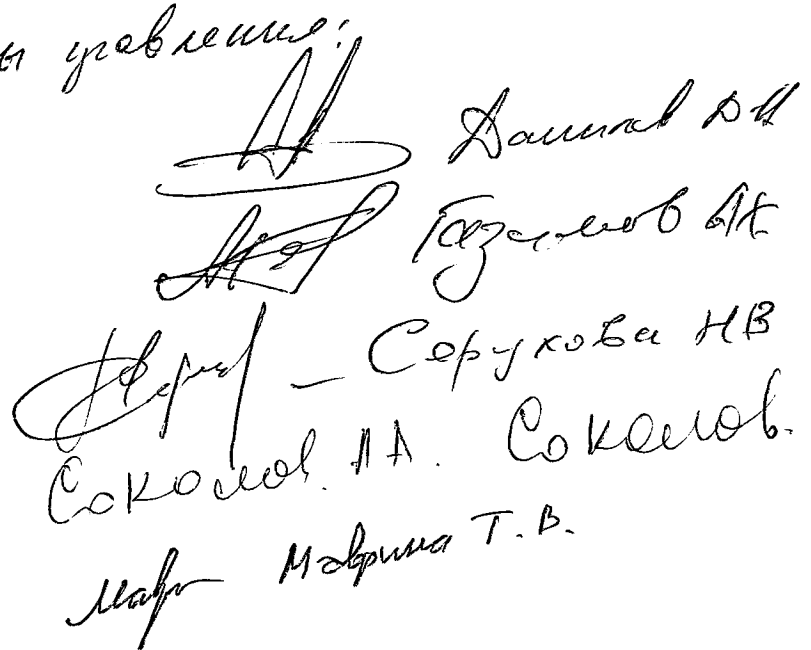 ы управления:
Данилов ДИ
АК
Серукова НВ
Соколов. А А. Соколов.
Маври Маврина Т. В.